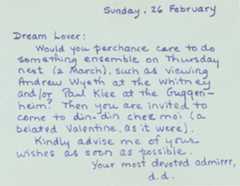 Sunday, 26 February
Dream Lover:
Would you perchance care to do
something ensemble on Thursday
next (2 March), such as viewing
Andrew Wyeth at the Whitney
and/or Paul Klee at the Guggen-
heim? Then you are invited to
come to din-din chez moi (a
belated Valentine, as it were).
Kindly advise me of your
wishes as soon as possible.
Your most devoted admirer,
d.d.